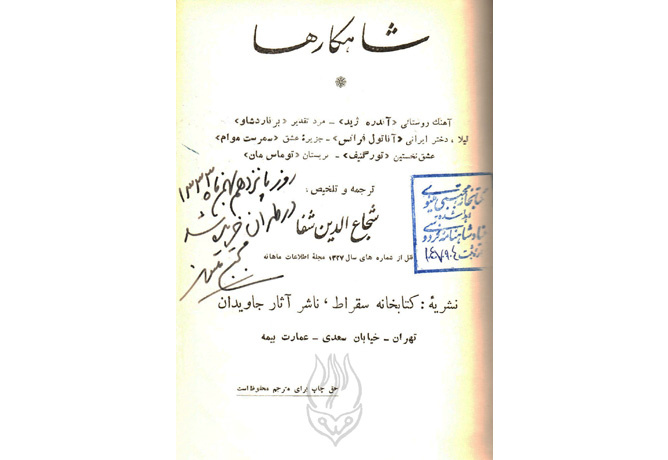 شاهکارها
آهنگ روستائی «آندره ژید» - مرد تقدیر «برناردشاو»
لیلا، دختر ایرانی «آناتول فرانس» - جزیرهٔ عشق «سمرست موام»
عشق نخستین «تورگنیف» - تریستان «توماس مان»
ترجمه و تلخیص:
شجاع الدین شفا
نقل از شماره های سال ۱۳۲۷ مجلهٔ اطلاعات ماهانه
روز پانزدهم بهمن ماه ۱۳۳۳
در طهران خریده شد
مجتبی مینوی
کتابخانه مجتبی مینوی
اهداء شده به
بنیاد شاهنامه فردوسی
نشریهٔ: کتابخانه سقراط، ناشر آثار جاویدان
تهران - خیابان سعدی - عمارت بیمه
حق چاپ برای مترجم محفوظ است